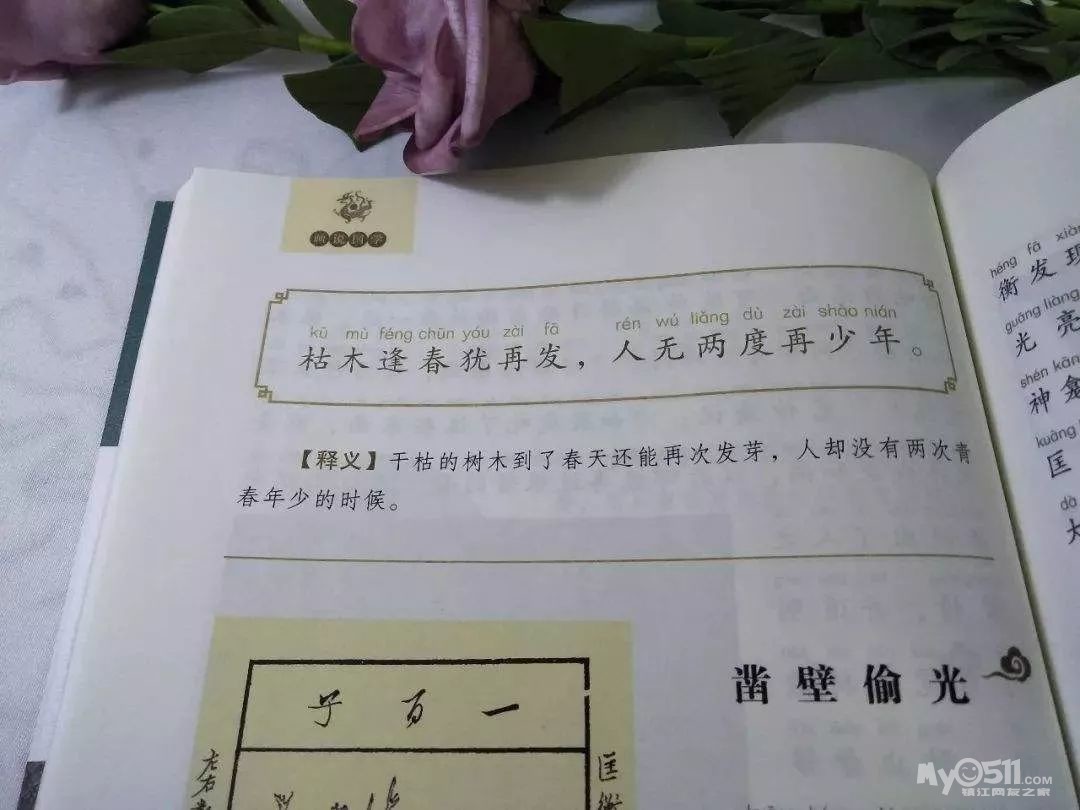 画说国学
kū mù féng chūn yóu zài fā rén wú liǎng dù zài shào nián
枯木逢春犹再发，人无两度再少年。
【释义】干枯的树木到了春天还能再次发芽，人却没有两次青
春年少的时候。
凿壁偷光
匡衡
héng fā
衡发现
guāng liàng
光亮
shén
神龛
kuāng
匡
dà
大
My0511.com
镇江网友之家